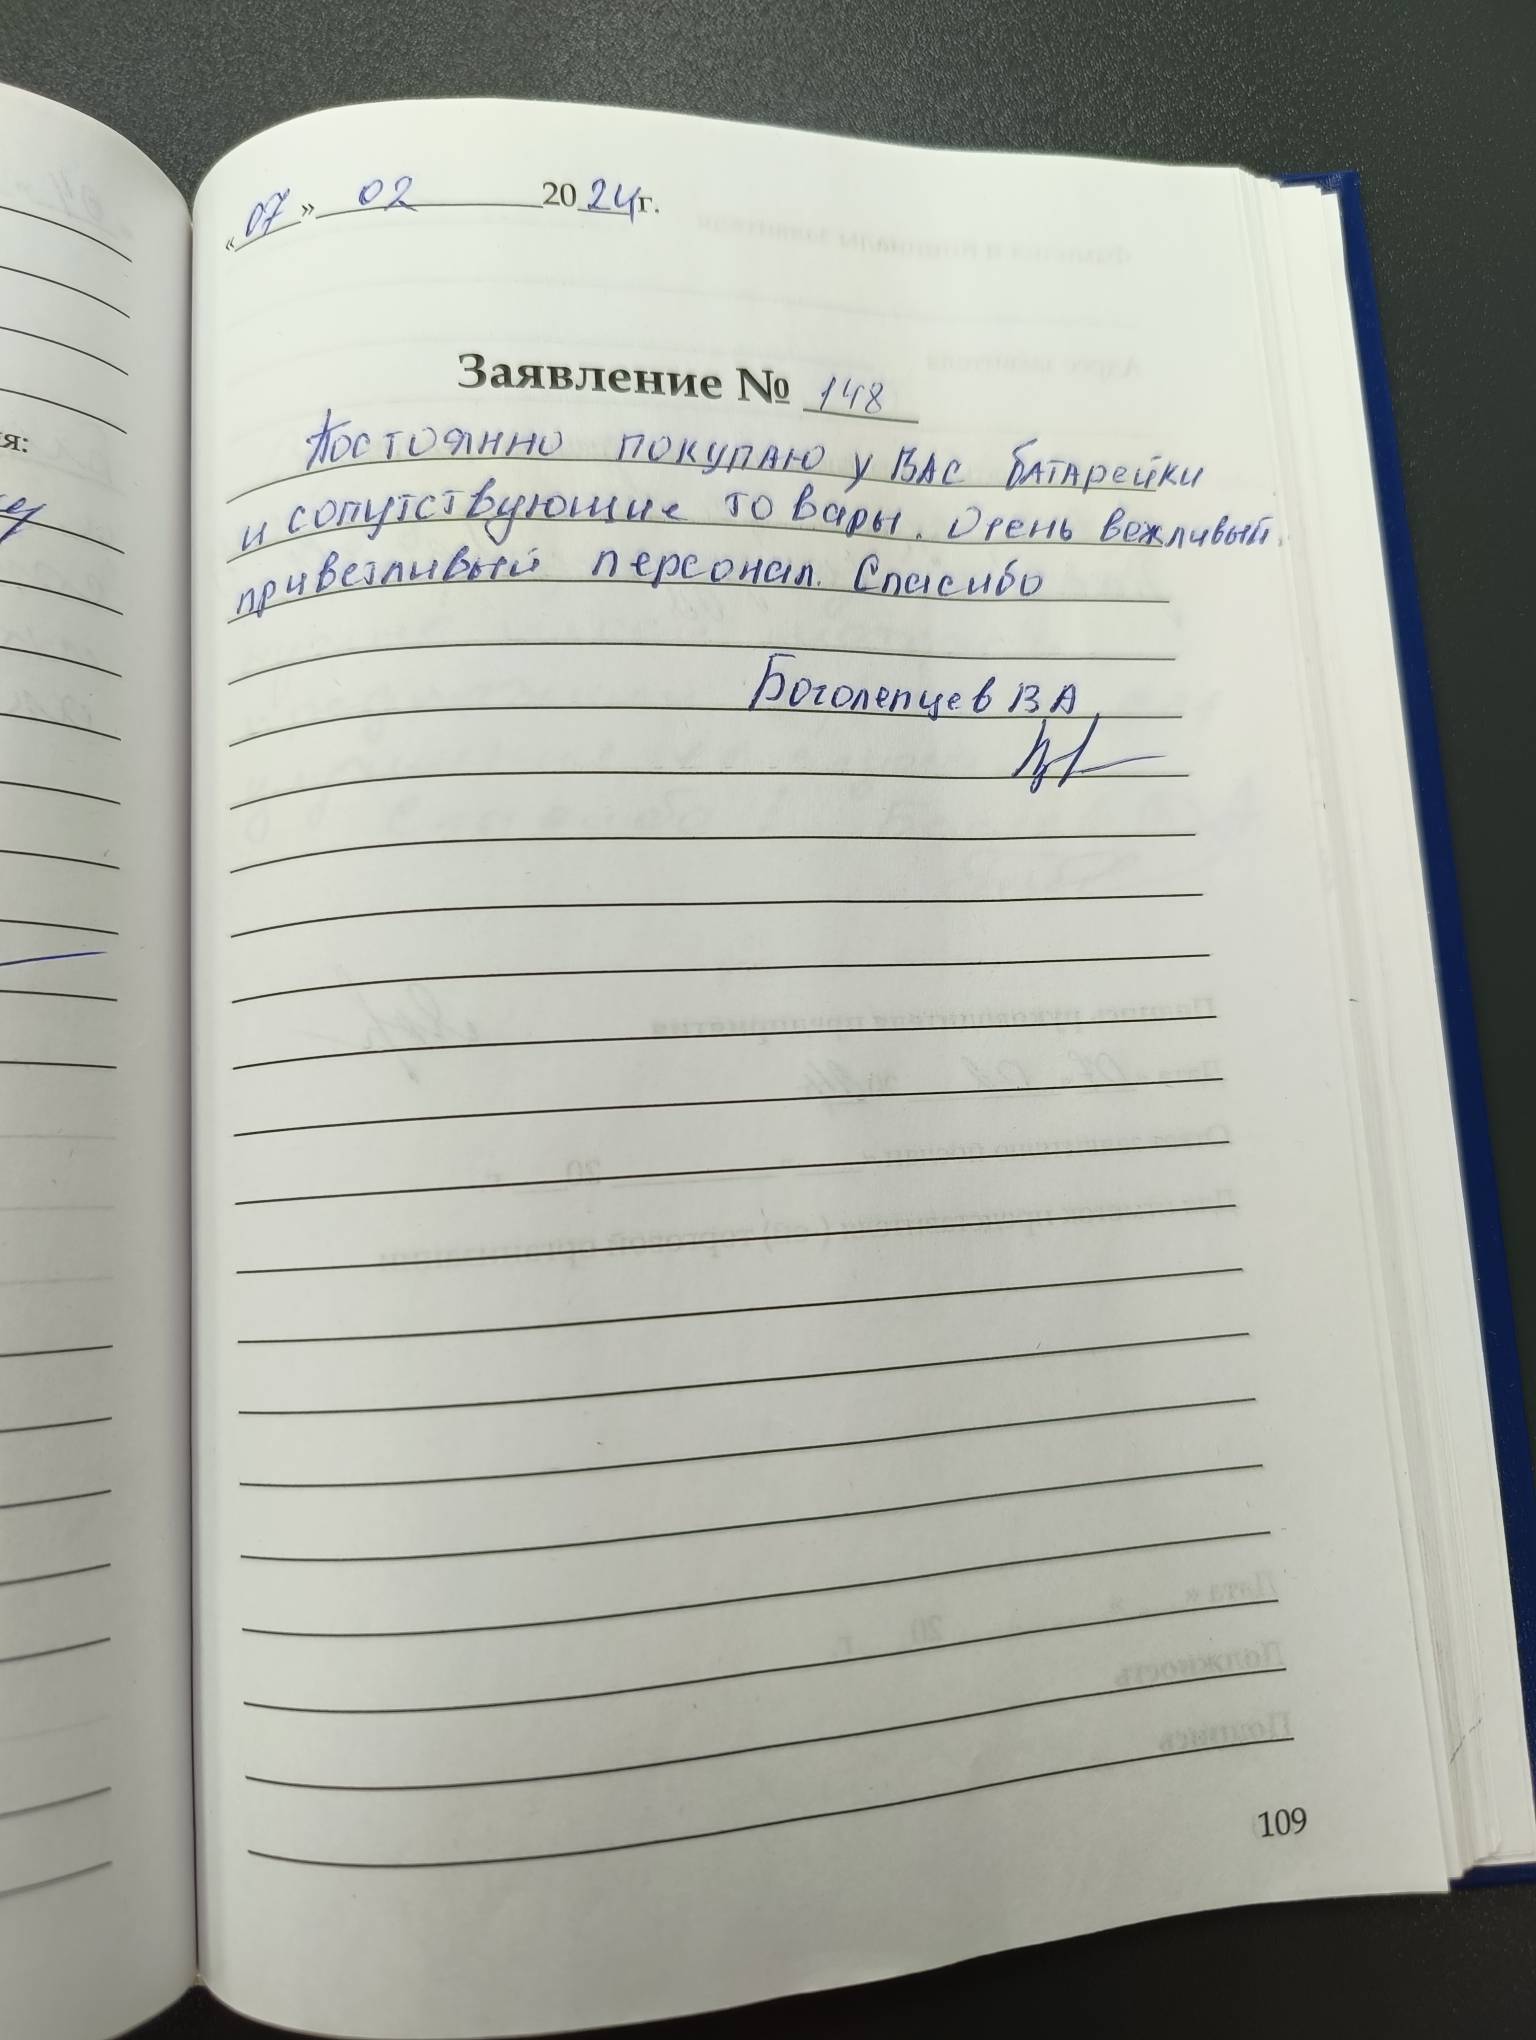 «07» 02 2024г.
Заявление № 148
Постоянно покупаю у Вас батарейки
и сопутствующие товары. Очень вежливый,
приветливый персонал. Спасибо
Боголепцев В А
я:
109